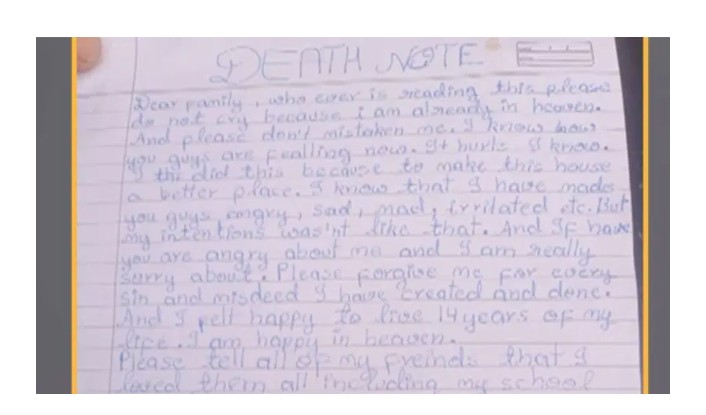 DEATH NOTE
Dear family, who ever is reading this please
do not cry because i am already in heaven.
And please don't mistaken me. I know how
you guys are fealling now. It hurts I know.
I the did this because to make this house
a better place. I know that I have made
you guys engry, sad, mad, irritated etc. But
my intentions was'nt like that. And If have
you are angry about me and I am really
sorry about. Please forgive me for every
sin and misdeed I have created and done.
And I felt happy to live 14 years of my
life. I am happy in heaven.
Please tell all of my freinds that I
loved them all including my school